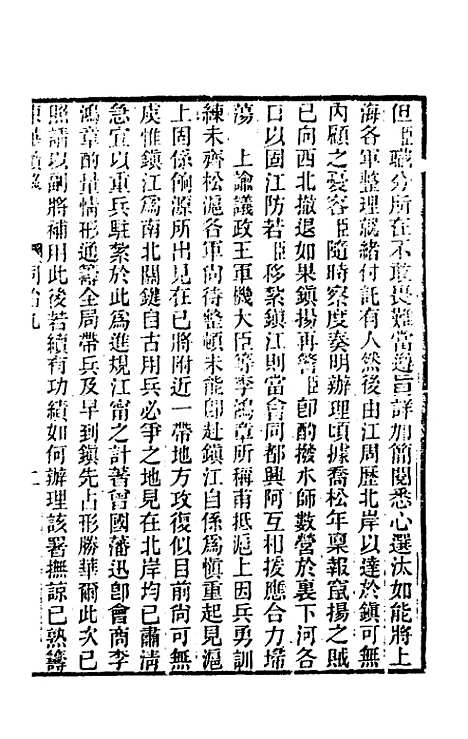 但臣職分所在不敢畏難當遵旨詳加簡閱悉心選汰如能將上
海各軍整理就緒付託有人然後由江周歷北岸以達於鎮可無
內顧之憂容臣隨時察度奏明辦理頃據喬松年稟報竄揚之賊
已向西北撤退如果鎮揚再警臣卽酌撥水師數營於裏下河各
口以固江防若臣移紮鎮江則當會同都興阿互相援應合力埽
蕩　上諭議政王軍機大臣等李鴻章所稱甫抵滬上因兵勇訓
練未齊松滬各軍尚待整頓未能卽赴鎮江自係爲愼重起見滬
上固係餉源所出見在已將附近一帶地方攻復似目前尚可無
虞惟鎮江爲南北關鍵自古用兵必爭之地見在北岸均已肅淸
急宜以重兵駐紮於此爲進規江甯之計著曾國藩迅卽會商李
鴻章酌量情形通籌全局帶兵及早到鎮先占形勝華爾此次已
照請以副將補用此後若續有功績如何辦理該署撫諒已熟籌
東華續錄　同治九